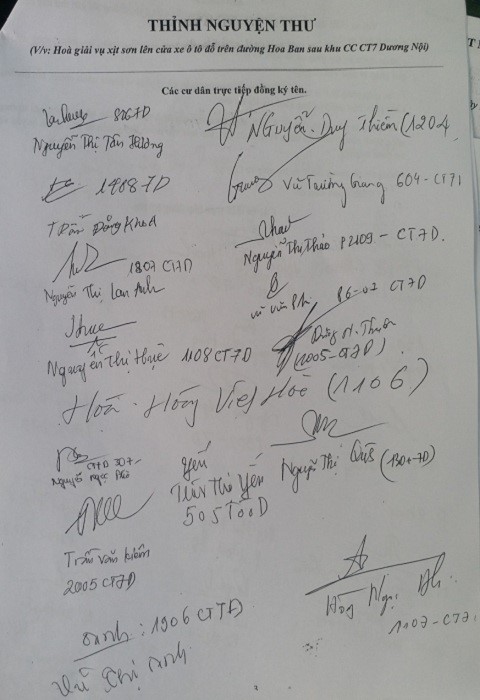 THỈNH NGUYỆN THƯ
(V/v: Hoà giải vụ xịt sơn lên cửa xe ô tô đỗ trên đường Hoa Ban sau khu CC CT7 Dương Nội)
Các cư dân trực tiếp đồng ký tên.
826 7D
Nguyễn Thị Tấn Hương
Nguyễn Duy Thiêm (1204
1908 7D
Vũ Trường Giang 604 - CT7
Trần Đăng Khoa
Nguyễn Thị Thảo P2109 - CT7D.
1807 CT7D
Nguyễn Thị Lan Anh
06-07 CT7D
Thuê
Nguyễn Thị Thuê 1108 CT7D
(2005-CT7D)
Hoà. Hoàng Việt Hoè (1106)
CT7D 307
Nguyễn Ngọc
Yến
Trần Thị Yến
505
Nguyễn Thị
Trần Văn Kiêm
2005 CT7D
1107-CT7
: 1906 CT7D
Vũ Thị
2